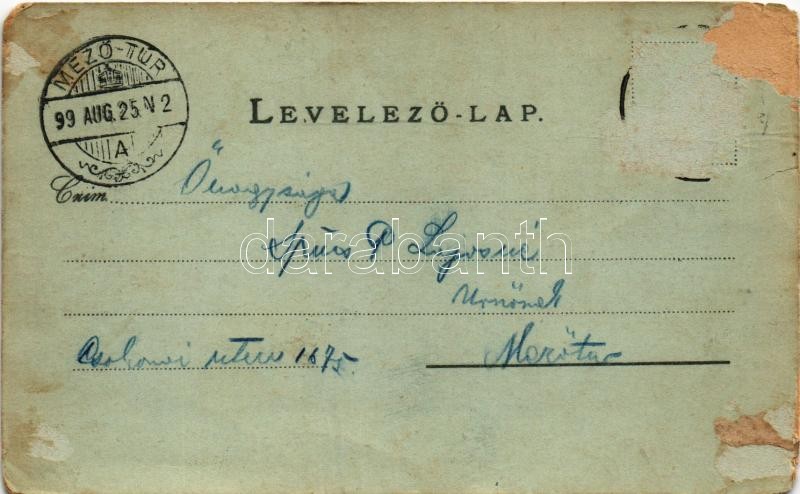 MEZŐ-TÚR
99 AUG. 25 N 2
A
LEVELEZŐ-LAP.
Czim Önagysága
P. Lajosné
Urnőnek
Mezőtúr
Csokonai utcza 1675.
darabanth